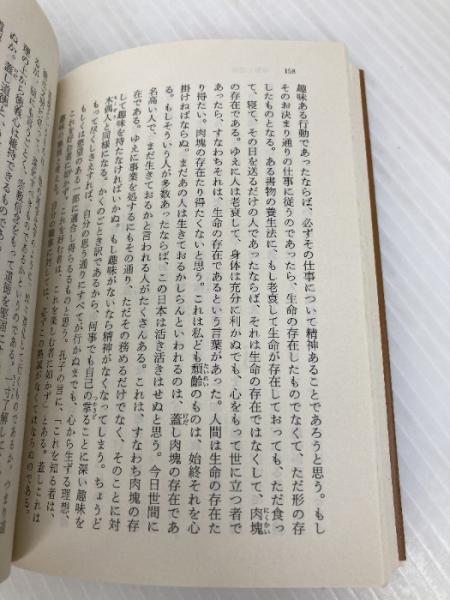 158
趣味ある行動であったならば、必ずその仕事について精神あることであろうと思う。もし
そのお決まり通りの仕事に従うのであったら、生命の存在したものでなくて、ただ形の存
したものとなる。ある書物の養生法に、もし老衰して生命が存在しておっても、ただ食っ
て、寝て、その日を送るだけの人であったならば、それは生命の存在ではなくして、肉塊
の存在である。ゆえに人は老衰して、身体は充分に利かぬでも、心をもって世に立つ者で
あったら、すなわちそれは、生命の存在であるという言葉があった。人間は生命の存在た
り得たい。肉塊の存在たり得たくないと思う。これは私ども頽齢のものは、始終それを心
掛けねばならぬ。まだあの人は生きておるかしらんといわれるのは、蓋し肉塊の存在であ
る。もしそういう人が多数あったならば、この日本は活き活きはせぬと思う。今日世間に
名高い人で、まだ生きておるかと言われる人がたくさんある。これは、すなわち肉塊の存
在である。ゆえに事業を処するにもその通り、ただその務めるだけでなく、そのことに対
して趣味を持たなければいかぬ。もし趣味がないなら精神がなくなってしまう。ちょうど
木偶人と同様になる。かくのごとき訳であるから、何事でも自己の掌ることに深い趣味を
もって尽くしさえすれば、自分の思う通りにすべてが行かぬまでも、心から生ずる理想、
もしくは慾望のある一部に適合し得らるるものと思う。孔子の言に、「これを知る者は、
これを好む者に如かず。これを好む者は、これを楽しむ者に如かず」とある。蓋しこれは